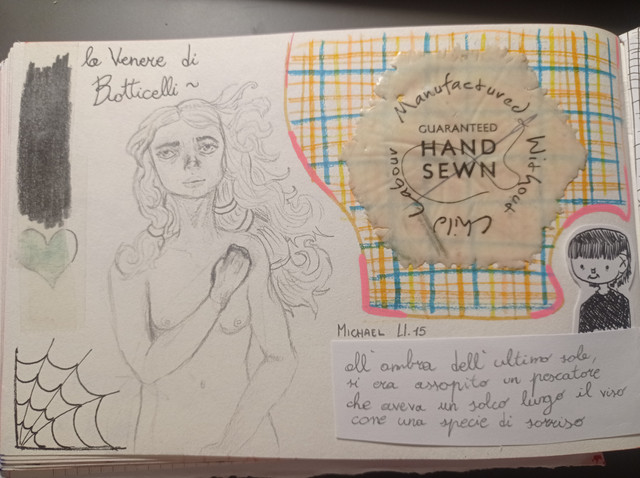 la Venere di
Botticelli ~
Manufactured Without Child Labour
GUARANTEED
HAND
SEWN
MICHAEL LI. 15
all'ombra dell'ultimo sole,
si era assopito un pescatore
che aveva un solco lungo il viso
come una specie di sorriso